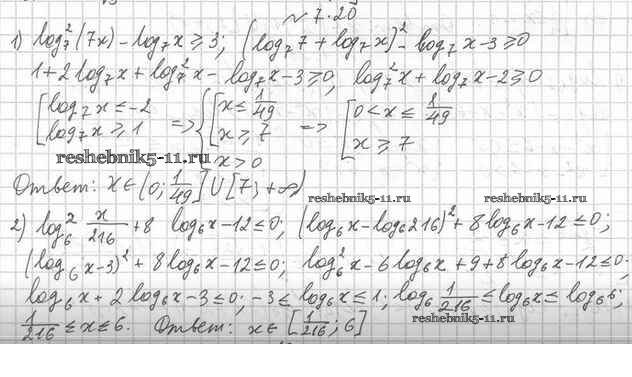 № 7.20
1) log₇²(7x) - log₇x ≥ 3; (log₇7 + log₇x)² - log₇x - 3 ≥ 0
1 + 2log₇x + log₇²x - log₇x - 3 ≥ 0, log₇²x + log₇x - 2 ≥ 0
[log₇x ≤ -2 => {[x ≤ 1/49 => [0 < x ≤ 1/49
log₇x ≥ 1 x ≥ 7 x ≥ 7
reshebnik5-11.ru x > 0
Ответ: x ∈ (0; 1/49] ∪ [7; +∞)
reshebnik5-11.ru reshebnik5-11.ru
2) log₆² x/216 + 8 log₆x - 12 ≤ 0; (log₆x - log₆216)² + 8log₆x - 12 ≤ 0;
(log₆x - 3)² + 8log₆x - 12 ≤ 0; log₆²x - 6log₆x + 9 + 8log₆x - 12 ≤ 0;
log₆x + 2log₆x - 3 ≤ 0; -3 ≤ log₆x ≤ 1; log₆ 1/216 ≤ log₆x ≤ log₆6;
1/216 ≤ x ≤ 6. Ответ: x ∈ [1/216; 6]
reshebnik5-11.ru